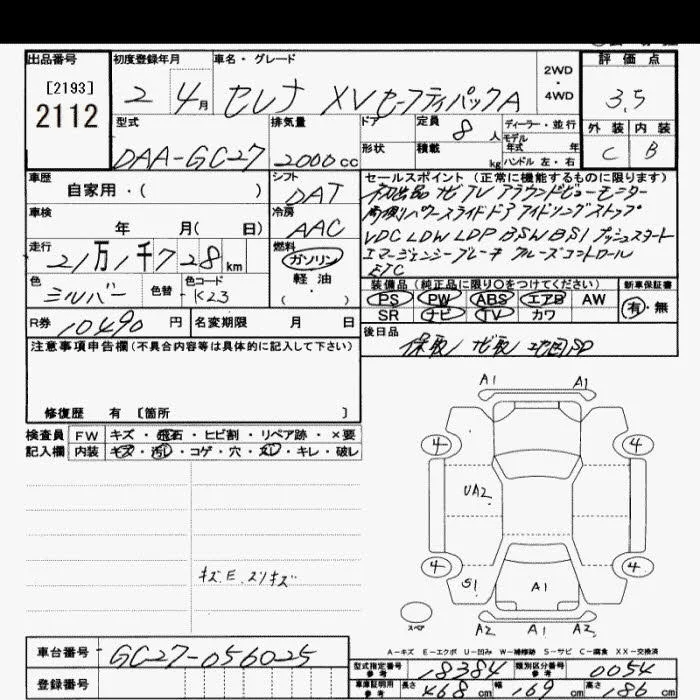 出品番号 初度登録年月 車名・グレード 評価点
[2193]
2112
2 4月 セレナ XVセーフティパックA 2WD・4WD 3.5
型式 排気量 ドア 定員 8人 ディーラー・並行 外装 内装
DAA-GC27 2000cc 形状 積載 kg モデル年式 年 ハンドル 左・右 C B
車歴 自家用・( ) シフト DAT
セールスポイント(正常に機能するものに限ります)
初出品 ナビ TV アラウンドビューモニター
両側パワースライドドア アイドリングストップ
VDC LDW LDP BSW BSI プッシュスタート
エマージェンシーブレーキ クルーズコントロール
ETC
車検 年 月( 日) 冷房 AAC
走行 21万1千728km 燃料 ガソリン 軽油・( )
色 シルバー 色替 色コード K23
装備品(純正品に限り○をつけてください) 新車保証書
PS PW ABS エアB AW 有・無
SR ナビ TV カワ
R券 10490円 名変期限 月 日
後日品
保取/ナビ取 地図SD
注意事項申告欄(不具合内容等は具体的に記入して下さい)
修復歴 有 [箇所 ]
検査員 FW キズ・飛石・ヒビ割・リペア跡・×要
記入欄 内装 キズ・汚レ・コゲ・穴・スレ・キレ・破レ
キズ.E.スリキズ
A1 A1
4 4
UA2
4 4
S1 A1
スペア A2 A1 A2
A-キズ E-エクボ U-凹み W-補修跡 S-サビ C-腐食 XX-交換済
車台番号 GC27-056025
型式指定番号 参考 18384 類別区分番号 参考 0054
登録番号
車庫証明用 参考 長さ 468cm 幅 169cm 高さ 186cm